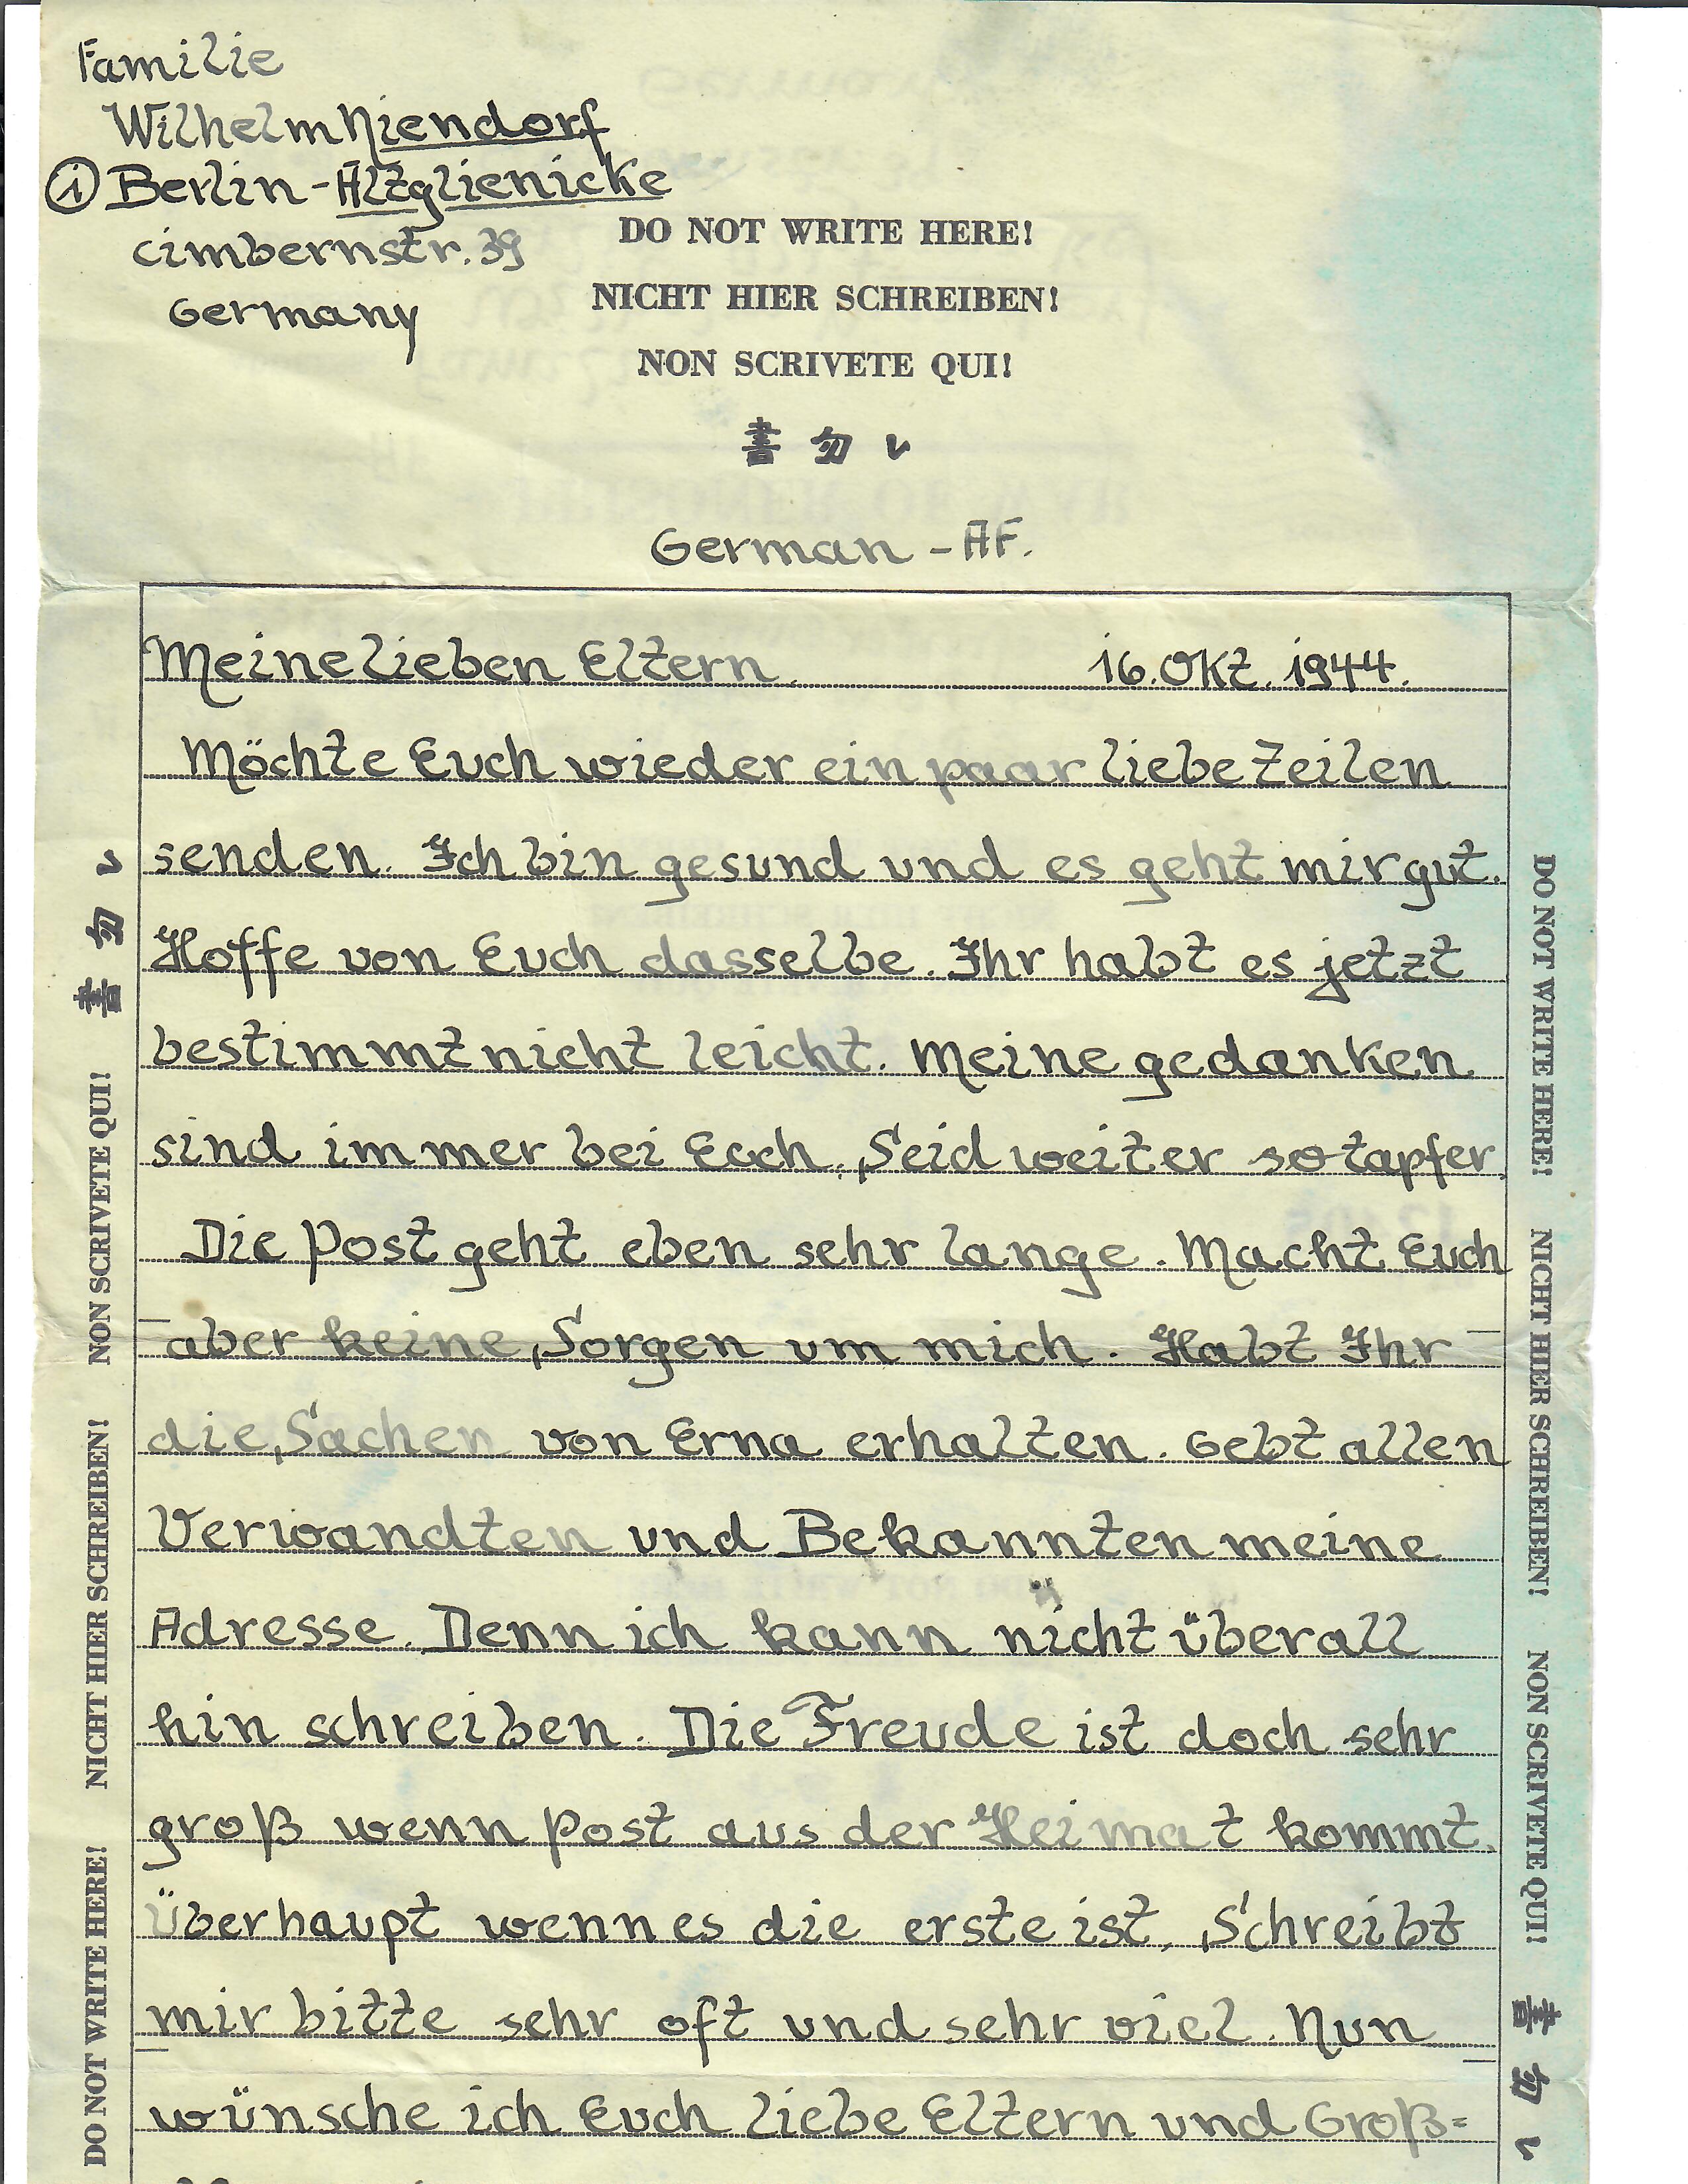 Familie
Wilhelm Niendorf
① Berlin-Altglienicke
Cimbernstr. 39
Germany
DO NOT WRITE HERE!
NICHT HIER SCHREIBEN!
NON SCRIVETE QUI!
書 勿 レ
German - AF.
Meine lieben Eltern. 16. Okt. 1944.
Möchte Euch wieder ein paar liebe Zeilen
senden. Ich bin gesund und es geht mir gut.
Hoffe von Euch dasselbe. Ihr habt es jetzt
bestimmt nicht leicht. Meine gedanken
sind immer bei Euch. Seid weiter so tapfer.
Die Post geht eben sehr lange. Macht Euch
aber keine Sorgen um mich. Habt Ihr
die Sachen von Erna erhalten. Gebt allen
Verwandten und Bekannten meine
Adresse. Denn ich kann nicht überall
hin schreiben. Die Freude ist doch sehr
groß wenn Post aus der Heimat kommt.
Überhaupt wenn es die erste ist. Schreibt
mir bitte sehr oft und sehr viel. Nun
wünsche ich Euch liebe Eltern und Groß=
DO NOT WRITE HERE! NICHT HIER SCHREIBEN! NON SCRIVETE QUI! 書 勿 レ
DO NOT WRITE HERE! NICHT HIER SCHREIBEN! NON SCRIVETE QUI! 書 勿 レ